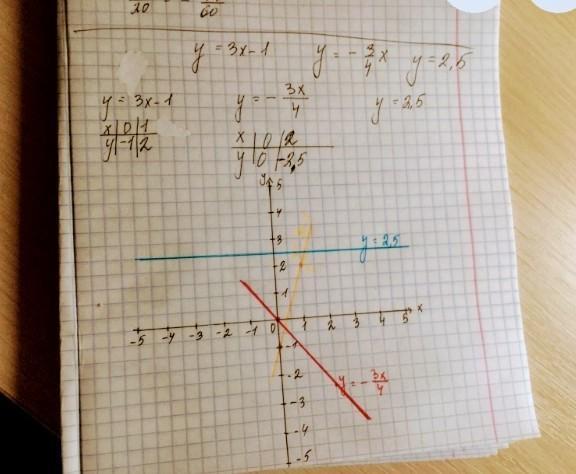 20 60
y = 3x-1 y = -3/4 x y = 2,5
y = 3x-1 y = -3x/4 y = 2,5
x | 0 | 1 x | 0 | 2
y | -1 | 2 y | 0 | -2,5
y
5
4
3 y = 2,5
2
1
-5 -4 -3 -2 -1 0 1 2 3 4 5 x
-1
-2 y = -3x/4
-3
-4
-5